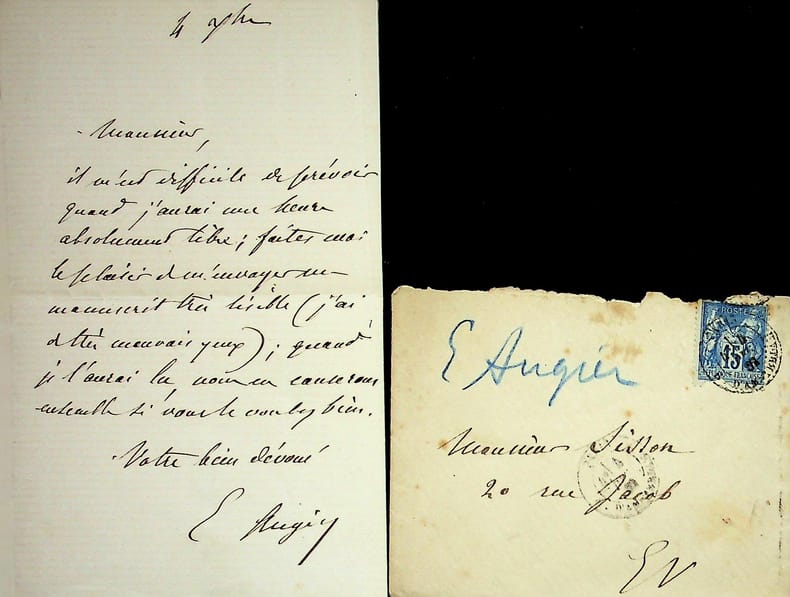 4 7bre
Monsieur,
il m'est difficile de prévoir
quand j'aurai une heure
absolument libre ; faites moi
le plaisir de m'envoyer un
manuscrit très lisible (j'ai
de très mauvais yeux) ; quand
je l'aurai lu nous en causerons
ensemble si vous le voulez bien.
Votre bien dévoué
E Augier
E Augier
POSTE
15
Monsieur Sisson
20 rue Jacob
EV